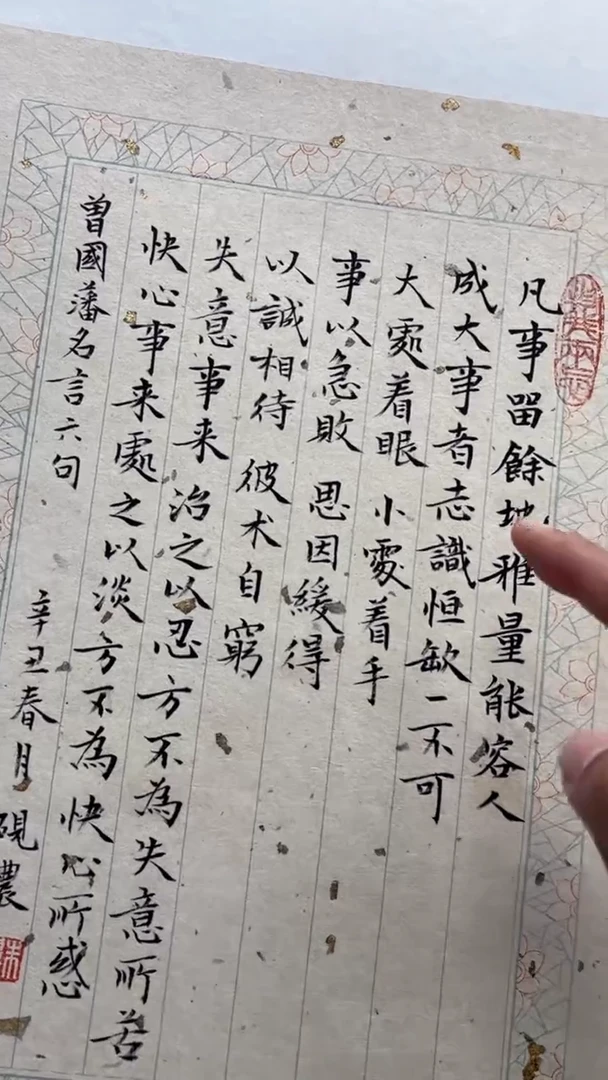 凡事留餘地 雅量能容人
成大事者志識恒缺一不可
大處着眼 小處着手
事以急敗 思因緩得
以誠相待 彼术自窮
失意事来 治之以忍 方不為失意所苦
快心事来 處之以淡 方不為快心所惑
曾國藩名言六句
辛丑春月
硯農